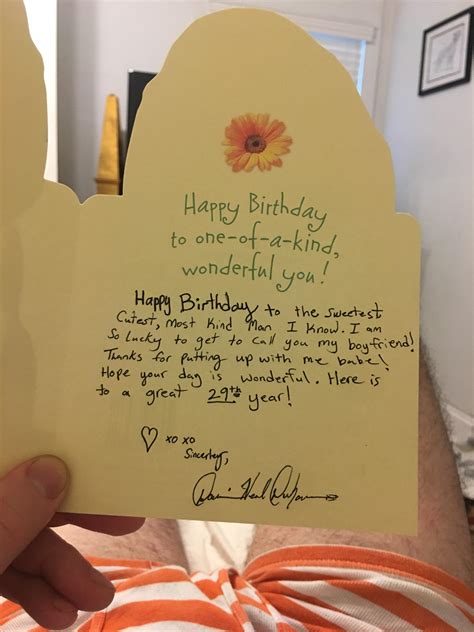 Happy Birthday
to one-of-a-kind,
wonderful you!
Happy Birthday to the sweetest
Cutest, most kind man I know. I am
So Lucky to get to call you my boyfriend!
Thanks for putting up with me babe!
Hope your day is wonderful. Here is
to a great 29th year!
♡ xo xo
Sincerely,